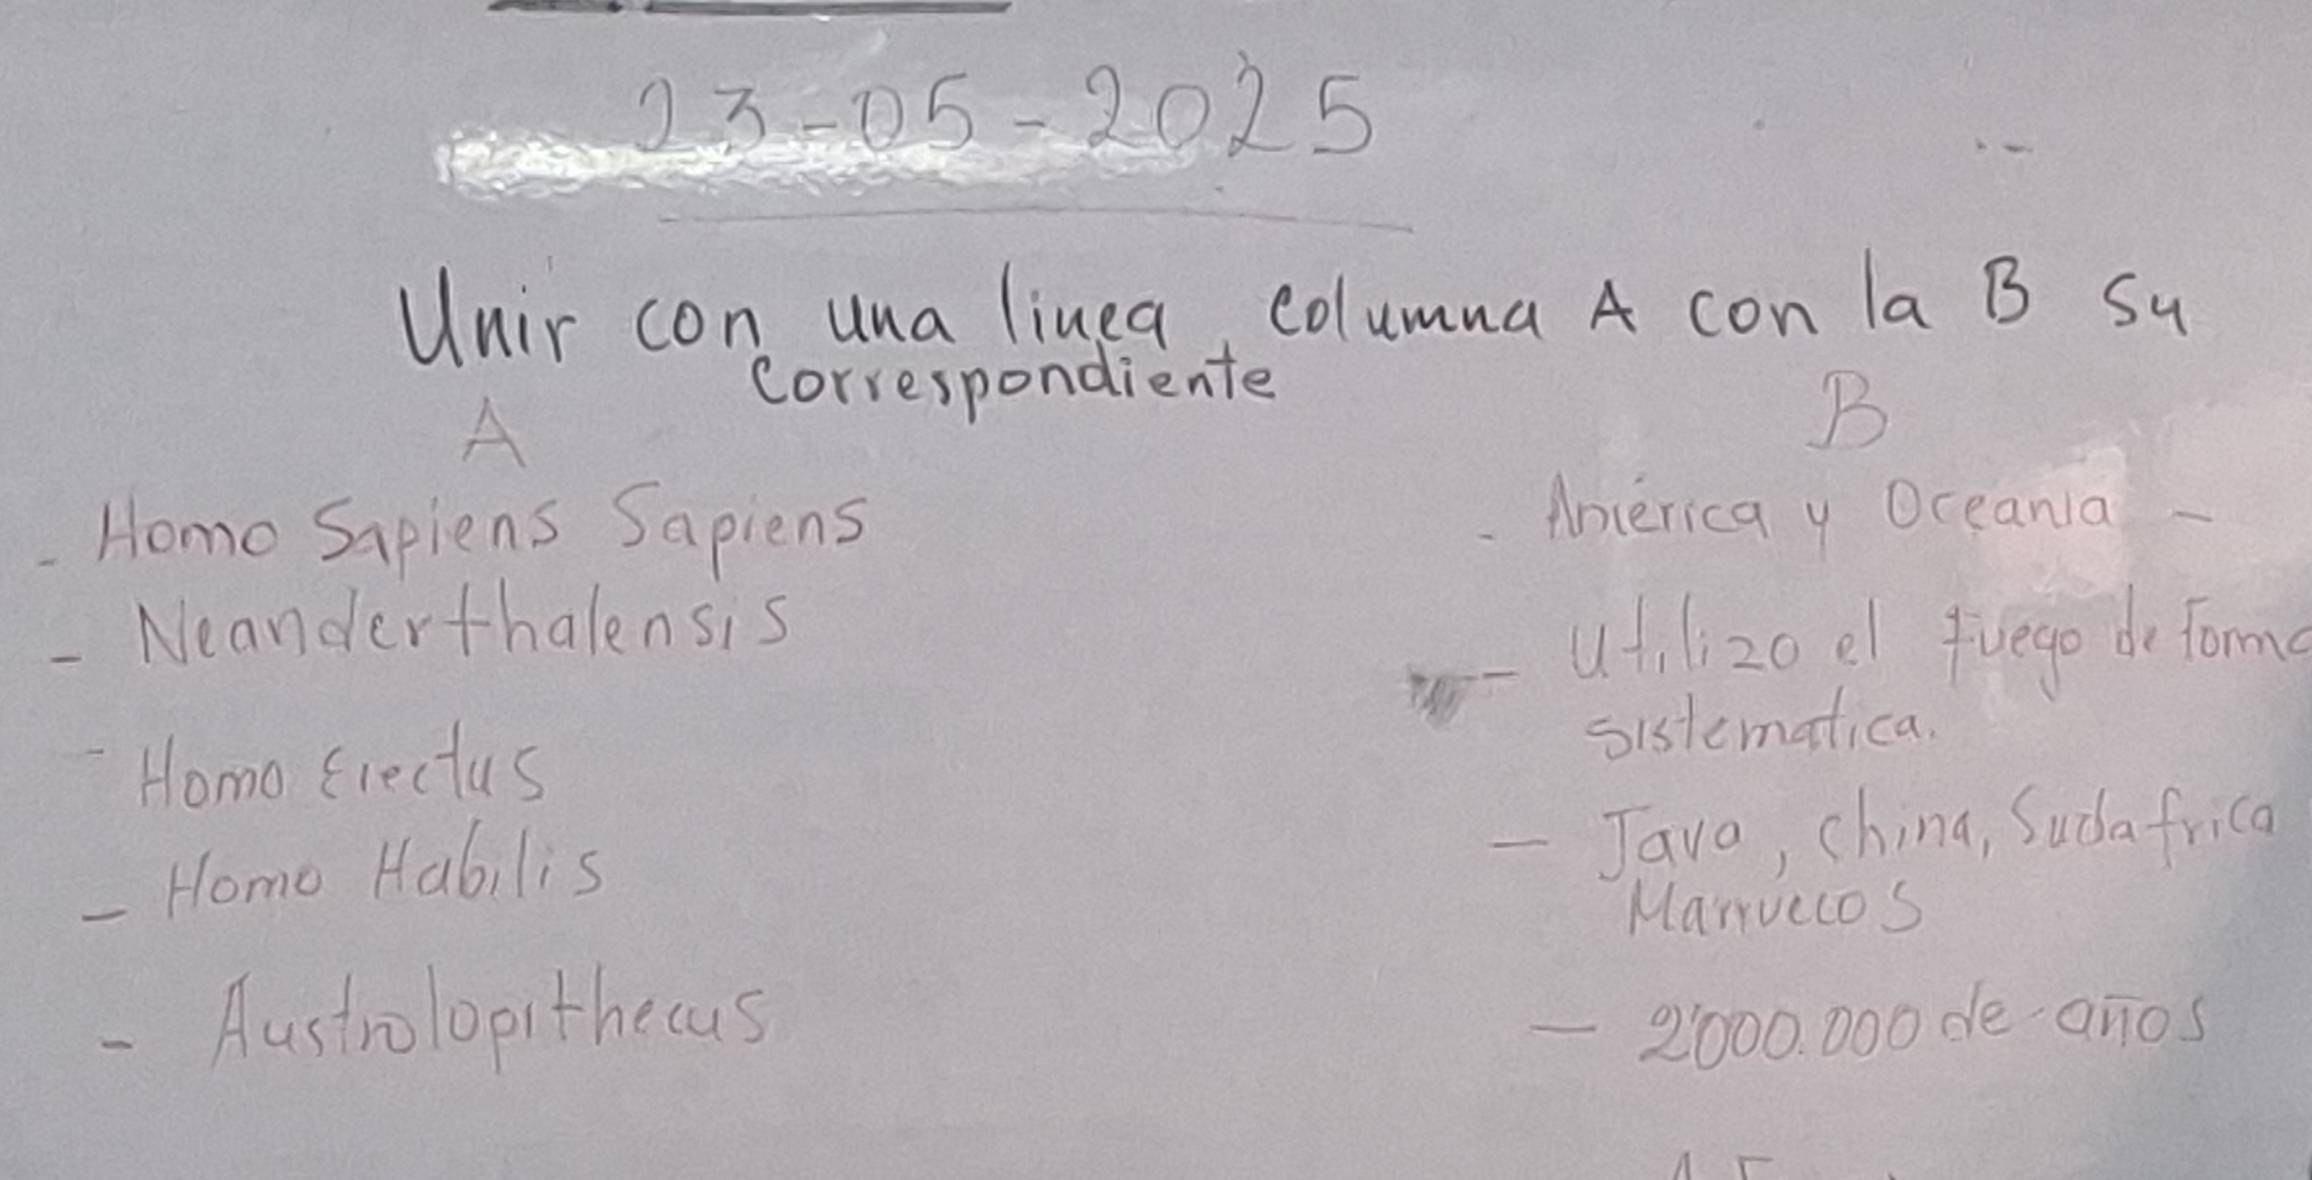 23-05-2025
Unir con una linea, columna A con la B su
correspondiente
A
B
- Homo Sapiens Sapiens
- América y Oceania -
- Neanderthalensis
- Utilizo el fuego de forma
sistematica.
- Homo Erectus
- Java, china, Sudafrica
Marruecos
- Homo Habilis
- Australopithecus
- 2'000.000 de años